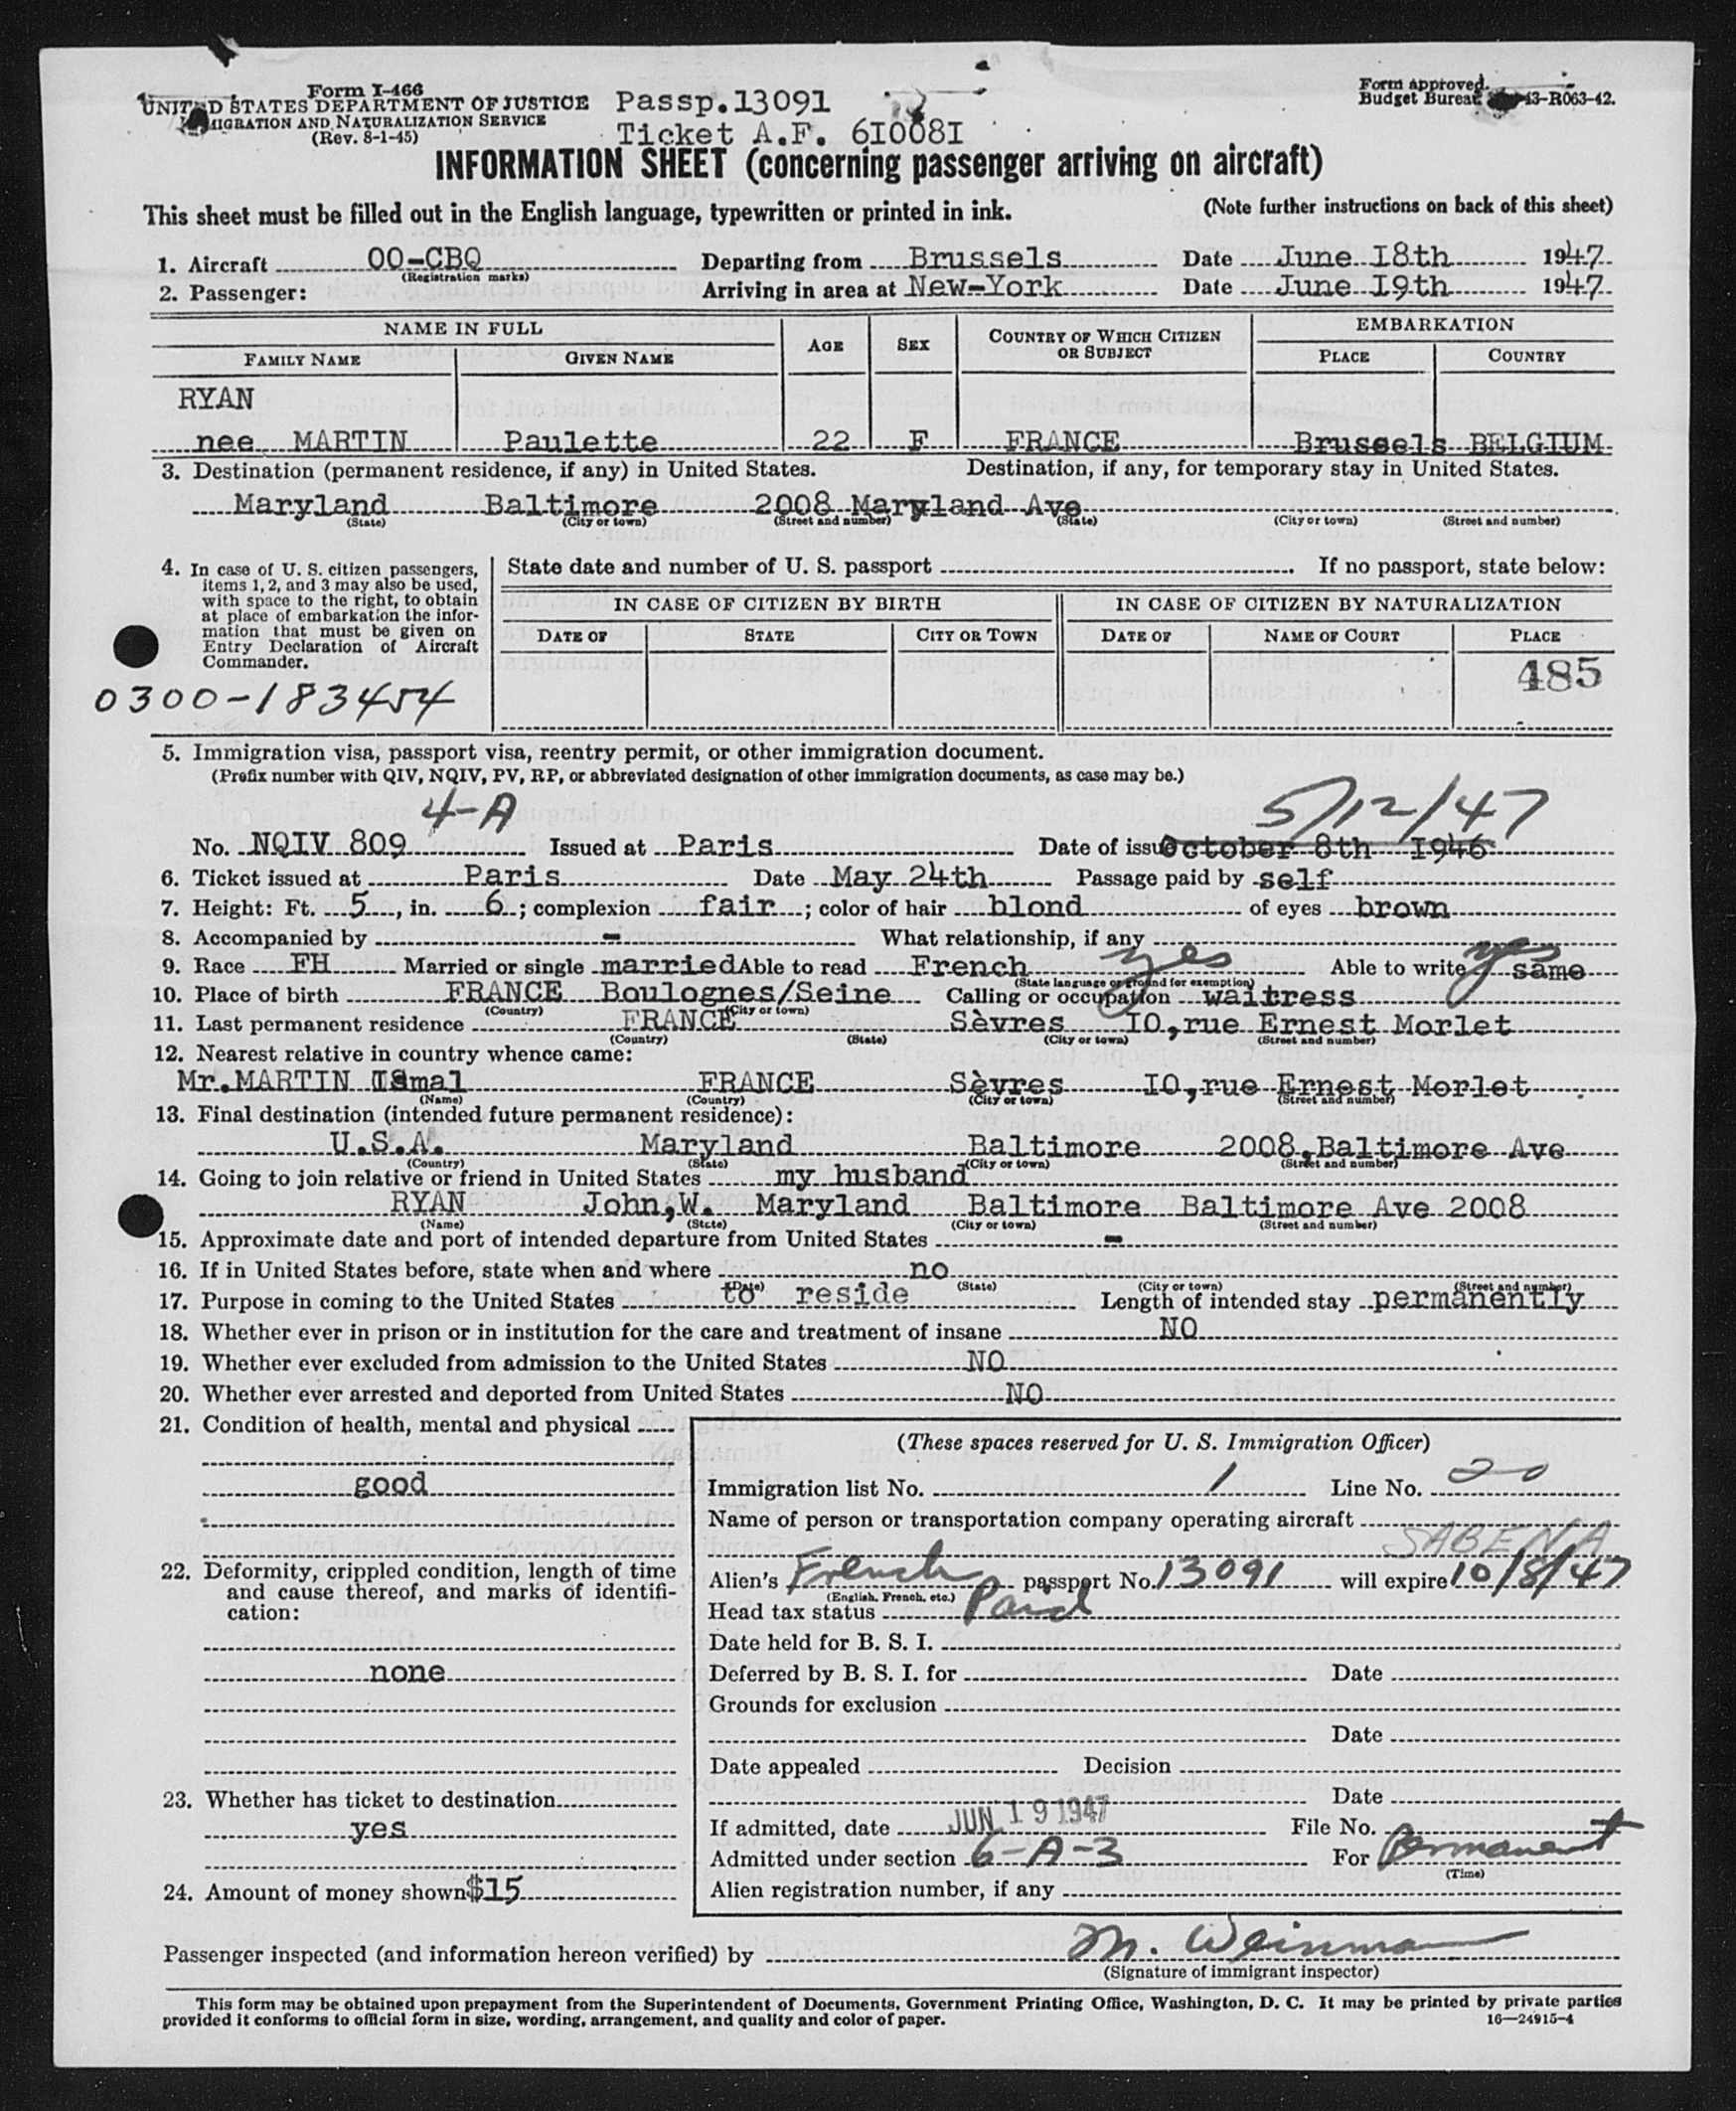 Form I-466
UNITED STATES DEPARTMENT OF JUSTICE
IMMIGRATION AND NATURALIZATION SERVICE
(Rev. 8-1-45)
Passp.13091
Ticket A.F. 6I008I
Form approved.
Budget Bureau 43-R063-42.
INFORMATION SHEET (concerning passenger arriving on aircraft)
This sheet must be filled out in the English language, typewritten or printed in ink. (Note further instructions on back of this sheet)
1. Aircraft OO-CBQ Departing from Brussels Date June I8th 1947
(Registration marks)
2. Passenger: Arriving in area at New-York Date June I9th 1947
NAME IN FULL AGE SEX COUNTRY OF WHICH CITIZEN OR SUBJECT EMBARKATION
FAMILY NAME GIVEN NAME PLACE COUNTRY
RYAN
nee MARTIN Paulette 22 F FRANCE Brussels BELGIUM
3. Destination (permanent residence, if any) in United States. Destination, if any, for temporary stay in United States.
Maryland Baltimore 2008 Maryland Ave
(State) (City or town) (Street and number) (State) (City or town) (Street and number)
4. In case of U. S. citizen passengers,
items 1, 2, and 3 may also be used,
with space to the right, to obtain
at place of embarkation the infor-
mation that must be given on
Entry Declaration of Aircraft
Commander.
0300-183454
State date and number of U. S. passport If no passport, state below:
IN CASE OF CITIZEN BY BIRTH IN CASE OF CITIZEN BY NATURALIZATION
DATE OF STATE CITY OR TOWN DATE OF NAME OF COURT PLACE
485
5. Immigration visa, passport visa, reentry permit, or other immigration document.
(Prefix number with QIV, NQIV, PV, RP, or abbreviated designation of other immigration documents, as case may be.)
4-A 5/12/47
No. NQIV 809 Issued at Paris Date of issue October 8th 1946
6. Ticket issued at Paris Date May 24th Passage paid by self
7. Height: Ft. 5, in. 6; complexion fair; color of hair blond of eyes brown
8. Accompanied by - What relationship, if any
9. Race FH Married or single married Able to read French yes Able to write yes same
(State language or ground for exemption)
10. Place of birth FRANCE Boulognes/Seine Calling or occupation waitress
(Country) (City or town)
11. Last permanent residence FRANCE Sèvres IO,rue Ernest Morlet
(Country) (State) (City or town) (Street and number)
12. Nearest relative in country whence came:
Mr.MARTIN FRANCE Sèvres IO,rue Ernest Morlet
(Name) (Country) (City or town) (Street and number)
13. Final destination (intended future permanent residence):
U.S.A. Maryland Baltimore 2008,Baltimore Ave
(Country) (State) (City or town) (Street and number)
14. Going to join relative or friend in United States my husband
RYAN John,W. Maryland Baltimore Baltimore Ave 2008
(Name) (State) (City or town) (Street and number)
15. Approximate date and port of intended departure from United States -
16. If in United States before, state when and where no
(Date) (State) (City or town) (Street and number)
17. Purpose in coming to the United States to reside Length of intended stay permanently
18. Whether ever in prison or in institution for the care and treatment of insane NO
19. Whether ever excluded from admission to the United States NO
20. Whether ever arrested and deported from United States NO
21. Condition of health, mental and physical
good
22. Deformity, crippled condition, length of time
and cause thereof, and marks of identifi-
cation:
none
23. Whether has ticket to destination
yes
24. Amount of money shown $15
(These spaces reserved for U. S. Immigration Officer)
Immigration list No. 1 Line No. 20
Name of person or transportation company operating aircraft
SABENA
Alien's French passport No. 13091 will expire 10/8/47
(English, French, etc.)
Head tax status Paid
Date held for B. S. I.
Deferred by B. S. I. for Date
Grounds for exclusion
Date
Date appealed Decision
Date
If admitted, date JUN 19 1947 File No.
Admitted under section 6-A-3 For Permanent
(Time)
Alien registration number, if any
Passenger inspected (and information hereon verified) by M. Weinman
(Signature of immigrant inspector)
This form may be obtained upon prepayment from the Superintendent of Documents, Government Printing Office, Washington, D. C. It may be printed by private parties
provided it conforms to official form in size, wording, arrangement, and quality and color of paper. 16—24915-4